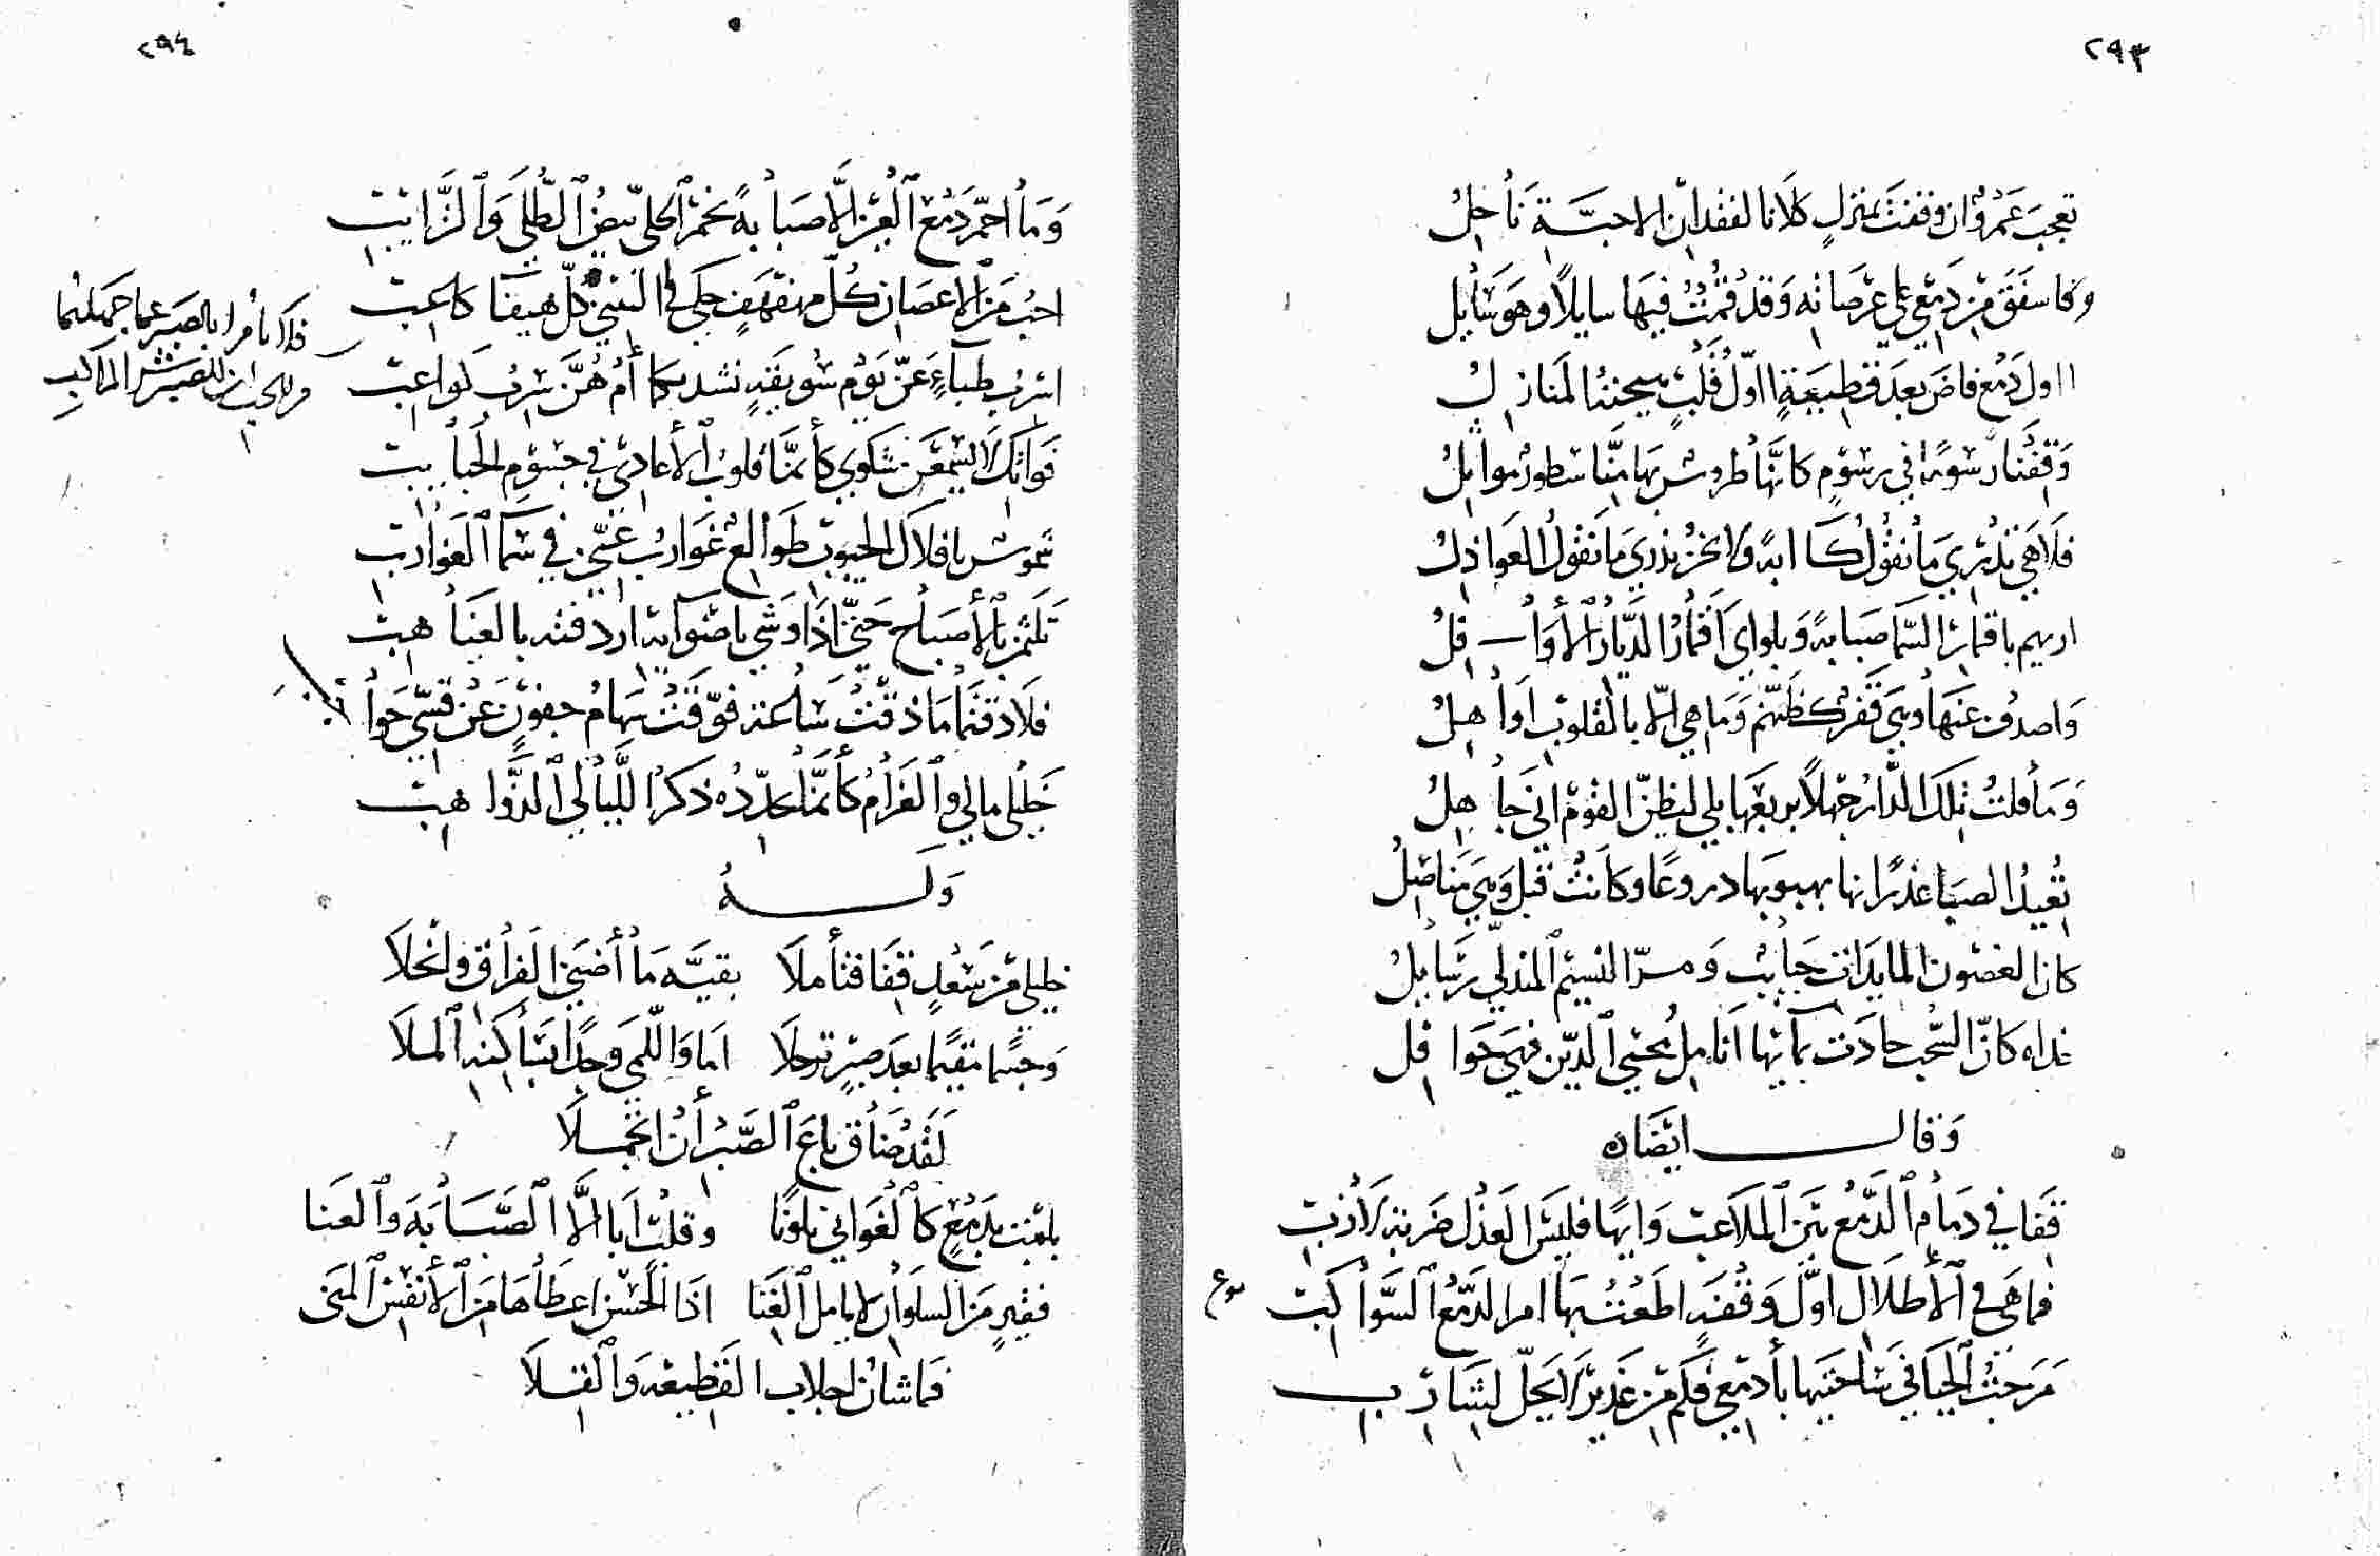 ٢٩٣
تعجب عمرو ان وقفت بمنزل كلانا لفقدان الاحبة ناحل
دمعي على عرصاته وقد قمت فيها سايلا وهو سايل
ااول دمع فاض بعد قطيعة ااول قلب هيجته المنازل
وقفنا رسوما في رسوم كانها طروس بها منا سطور مواثل
فلا هي تدري ما نقول كابة ولا نحن ندري ما تقول العواذل
اريهم باقمار السما صبابة وبلواي اقمار الديار الأوافل
واصدف عنها وهي قفر كظنهم وما هي الا بالقلوب اواهل
وما قلت تلك الدار جهلا بربعها بلى ليظن القوم اني جاهل
تعيد الصبا غدرانها بهبوبها دروعا وكانت قبل وهي مناصل
كان الغصون المايدات حبايب ومر النسيم المندلي رسايل
غداه كان السحب جادت بمآئها انامل محيي الدين فهي حوافل
وقال ايضا
قفا في دمام الدمع بين الملاعب وايها فليس العذل ضربة لازب
فما هي في الأطلال اول وقفة اطعت بها امر الدمع السواكب
مزجت الحيا في ساحتيها بأدمعي فكم من غدير لا يحل لشارب
٢٩٤
وما احمر دمع العين الا صبابة بحمر الحلى بيض الطلى والترايب
احب من الاغصان كل مهفهف حكى في التثني كل هيفا كاعب
اسرب ظباء عن يوم سويقة نشدتكما أم هن سرب كواعب
فلا تامرا بالصبر عما جهلتما
قلوب الأعادي في جسوم الحبايب
شموس بافلاك الجيوب طوالع غوارب عني في سما الغوارب
تلثم بالأصباح حتى اذا وشى باضوآيه اردفنه بالغياهب
فلا ذقتما ما ذقت ساعة فوقت سهام جفون عن قسي حواجب
خليلي مالي والغرام كأنما يجدده ذكر الليالي الذواهب
وله
خليلي من سعد قفا فتأملا بقية ما أضنى الفراق وانحلا
وجسما مقيما بعد صبر ترحلا اما واللمى وجدا بساكنة الملا
لقد ضاق باع الصبر أن اتجملا
بليت بدمع كالغواني تلونا وقلب ابا الا الصبابة والعنا
فقير من السلوان لا يامل الغنا اذا الحسن اعطاها من الأنفس المنى
فما شانها جلاب القطيعة والقلا